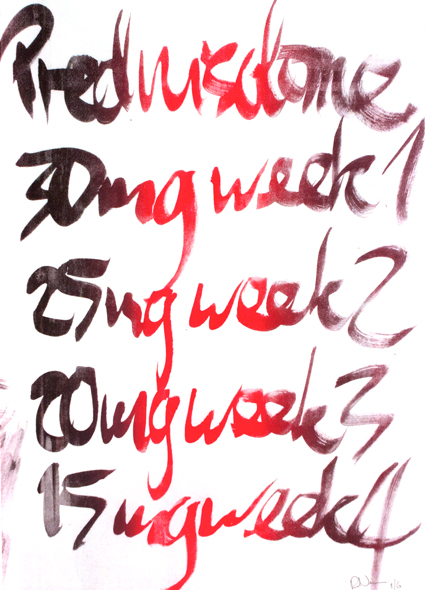 Prednisolome
30mg week 1
25mg week 2
20mg week 3
15mg week 4